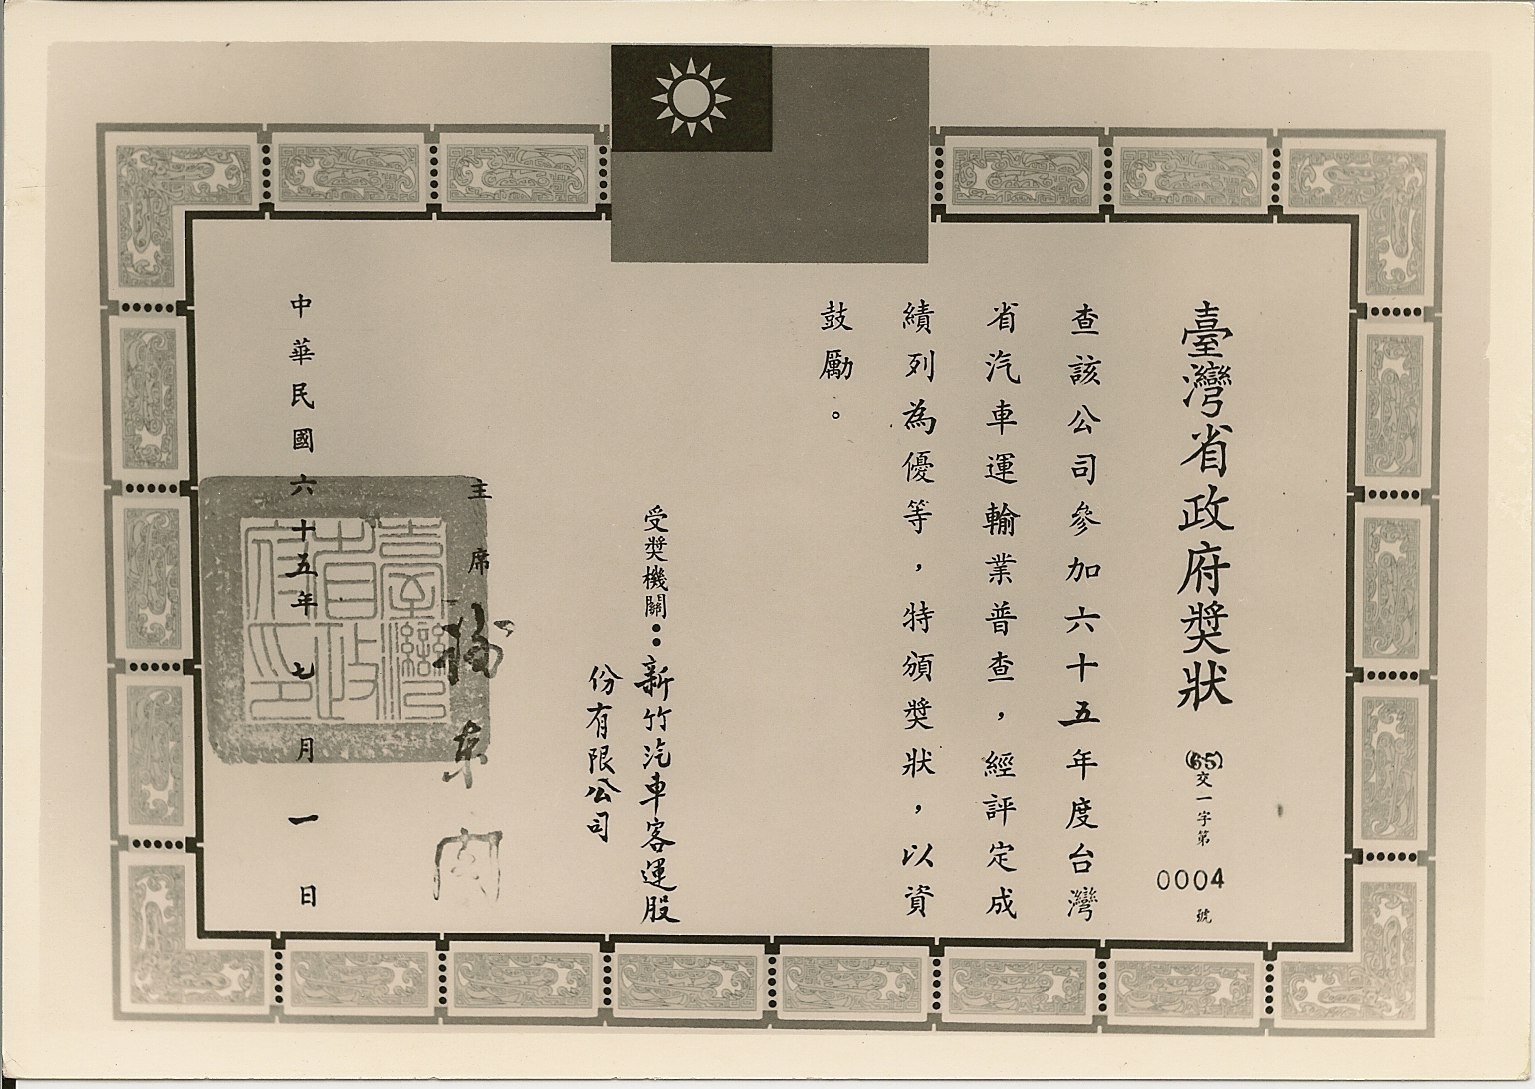 臺灣省政府獎狀 (65)交一字第0004號
查該公司參加六十五年度台灣
省汽車運輸業普查，經評定成
績列為優等，特頒獎狀，以資
鼓勵。
受獎機關：新竹汽車客運股
份有限公司
主席
臺灣省政府印
中華民國六十五年七月一日